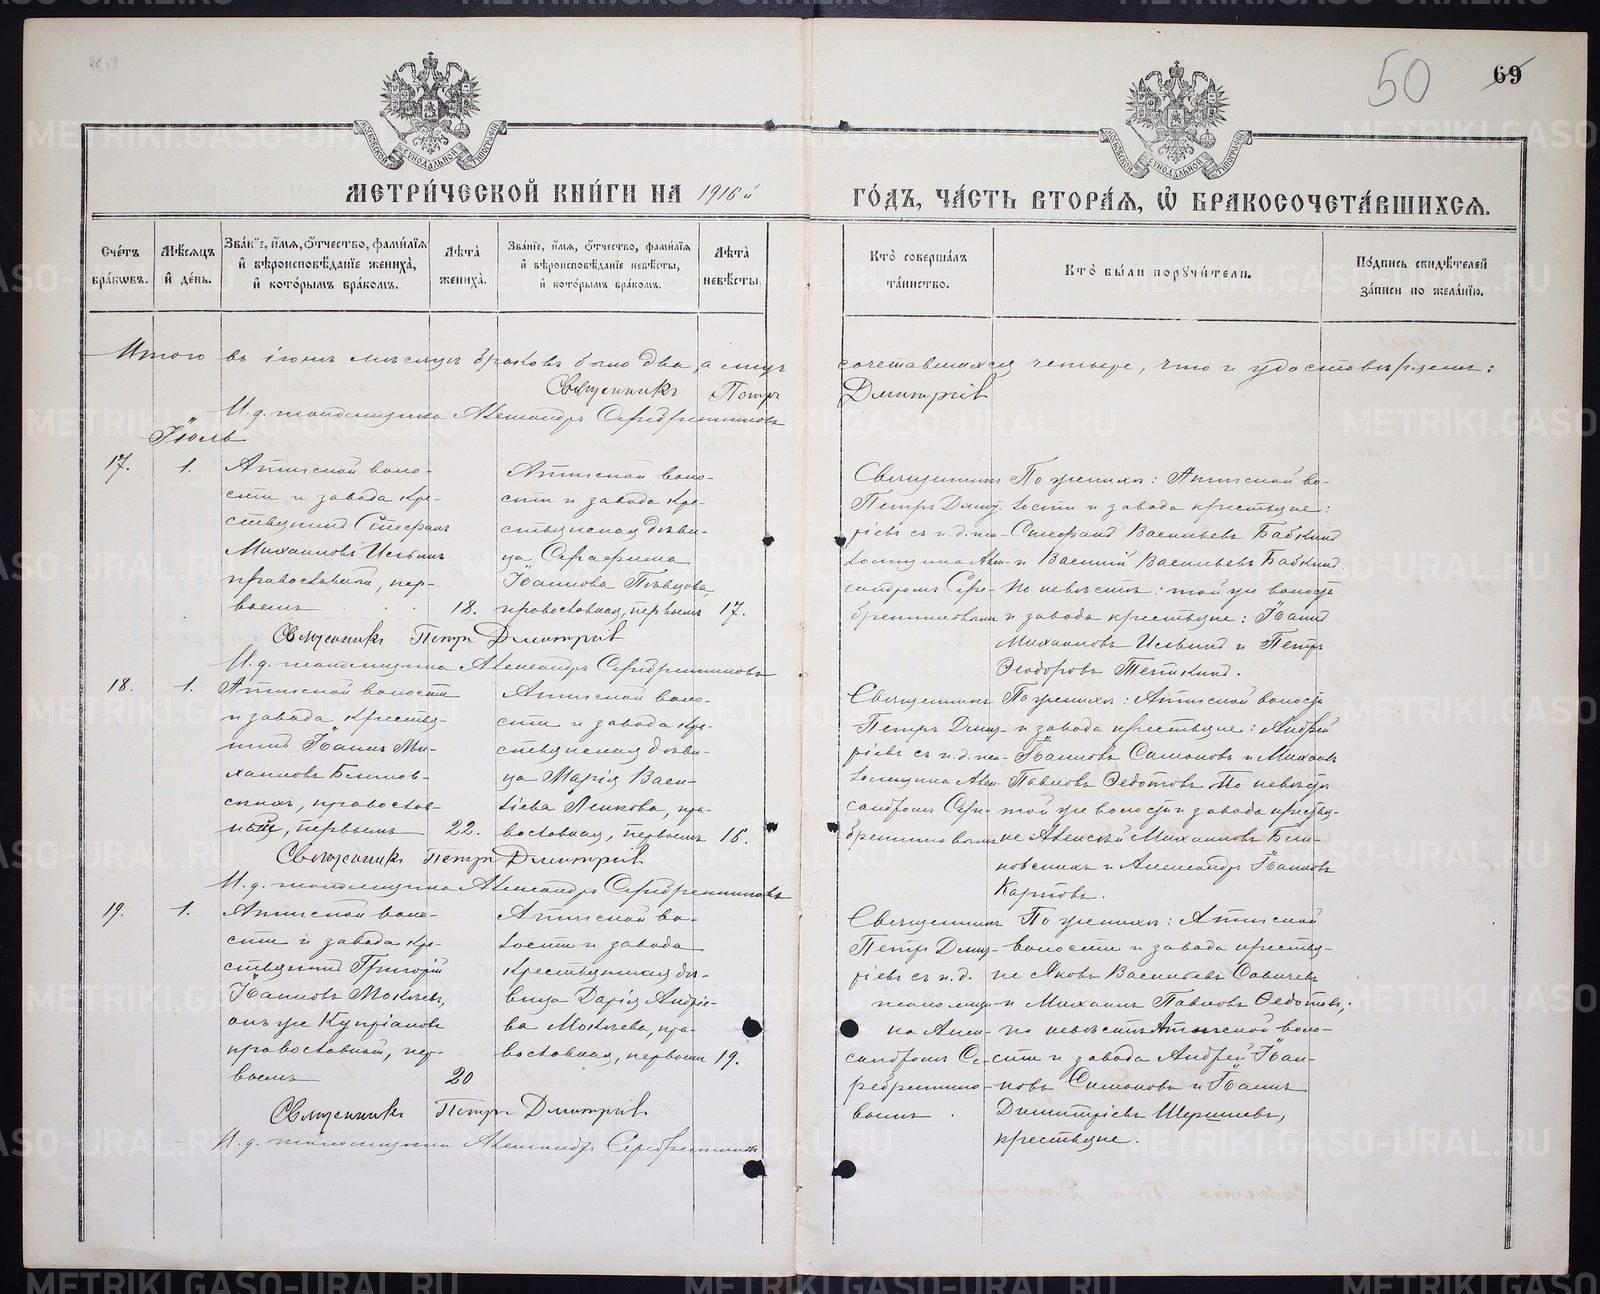 50
69
МЕТРИ́ЧЕСКОЙ КНИ́ГИ НА 1916й
ГО́ДЪ, ЧА́СТЬ ВТОРА́Я, Ѿ БРАКОСОЧЕТА́ВШИХСЯ.
Сче́тъ бра́кѡвъ.
Мѣ́сяцъ и҆ де́нь.
Зва́нїе, и҆́мя, ѻ҆́тчество, фами́лїя
и҆ вѣроисповѣ́данїе жениха̀,
и҆ кото́рымъ бра́комъ.
Лѣ́та̀ жениха̀.
Зва́нїе, и҆́мя, ѻ҆́тчество, фами́лїя
и҆ вѣроисповѣ́данїе невѣ́сты,
и҆ кото́рымъ бра́комъ.
Лѣ́та̀ невѣ́сты.
Кто̀ соверша́лъ
та́инство.
Кто̀ бы́ли порꙋчи́тели.
По́дпись свидѣ́телей
за́писи по жела́нїю.
Итого въ іюнѣ мѣсяцѣ браковъ было два, а лицъ
сочетавшихся четыре, что и удостовѣряемъ:
Священникъ Петръ
Дмитріевъ
И. д. псаломщика Александръ Серебренниковъ
Іюль
17.
1.
Атигской воло-
сти и завода кре-
стьянинъ Стефанъ
Михаиловъ Ильинъ
православный, пер-
вымъ
18.
Атигской воло-
сти и завода кре-
стьянская дѣви-
ца Серафима
Іоаннова Пѣвцова
православная, первымъ
17.
Священникъ
Петръ Дмит-
ріевъ съ и. д. пса-
ломщика Алек-
сандромъ Сере-
бренниковымъ
По женихѣ: Атигской во-
лости и завода крестьяне:
Стефанъ Васильевъ Бабкинъ
и Василій Васильевъ Бабкинъ
По невѣстѣ: той же волости
и завода крестьяне: Іоаннъ
Михаиловъ Ильинъ и Петръ
Ѳеодоровъ Теткинъ.
Священникъ Петръ Дмитріевъ
И. д. псаломщика Александръ Серебренниковъ
18.
1.
Атигской волости
и завода крестья-
нинъ Іоаннъ Ми-
хаиловъ Блинов-
скихъ, православ-
ный, первымъ
22.
Атигской воло-
сти и завода кре-
стьянская дѣви-
ца Марія Васи-
льева Пенкова, пра-
вославная, первымъ
16.
Священникъ
Петръ Дмит-
ріевъ съ и. д. пса-
ломщика Алек-
сандромъ Сере-
бренниковымъ
По женихѣ: Атигской волости
и завода крестьяне: Андрей
Іоанновъ Симоновъ и Михаилъ
Павловъ Ѳедотовъ. По невѣстѣ
той же волости и завода крестья-
не Алексѣй Михаиловъ Бли-
новскихъ и Александръ Іоанновъ
Карповъ.
Священникъ Петръ Дмитріевъ
И. д. псаломщика Александръ Серебренниковъ
19.
1.
Атигской воло-
сти и завода кре-
стьянинъ Григорій
Іоанновъ Мокѣевъ,
онъ же Купріановъ
православный, пер-
вымъ
20
Атигской во-
лости и завода
крестьянская дѣ-
вица Дарія Андрее-
ва Мокѣева, пра-
вославная, первымъ
19.
Священникъ
Петръ Дмит-
ріевъ съ и. д.
псаломщи-
ка Алек-
сандромъ Се-
ребреннико-
вымъ.
По женихѣ: Атигской
волости и завода крестья-
не Яковъ Васильевъ Савичевъ
и Михаилъ Павловъ Ѳедотовъ;
по невѣстѣ Атигской воло-
сти и завода Андрей Іоан-
новъ Симоновъ и Іоаннъ
Димитріевъ Шершневъ,
крестьяне.
Священникъ Петръ Дмитріевъ
И. д. псаломщика Александръ Серебренниковъ
METRIKI.GASO-URAL.RU